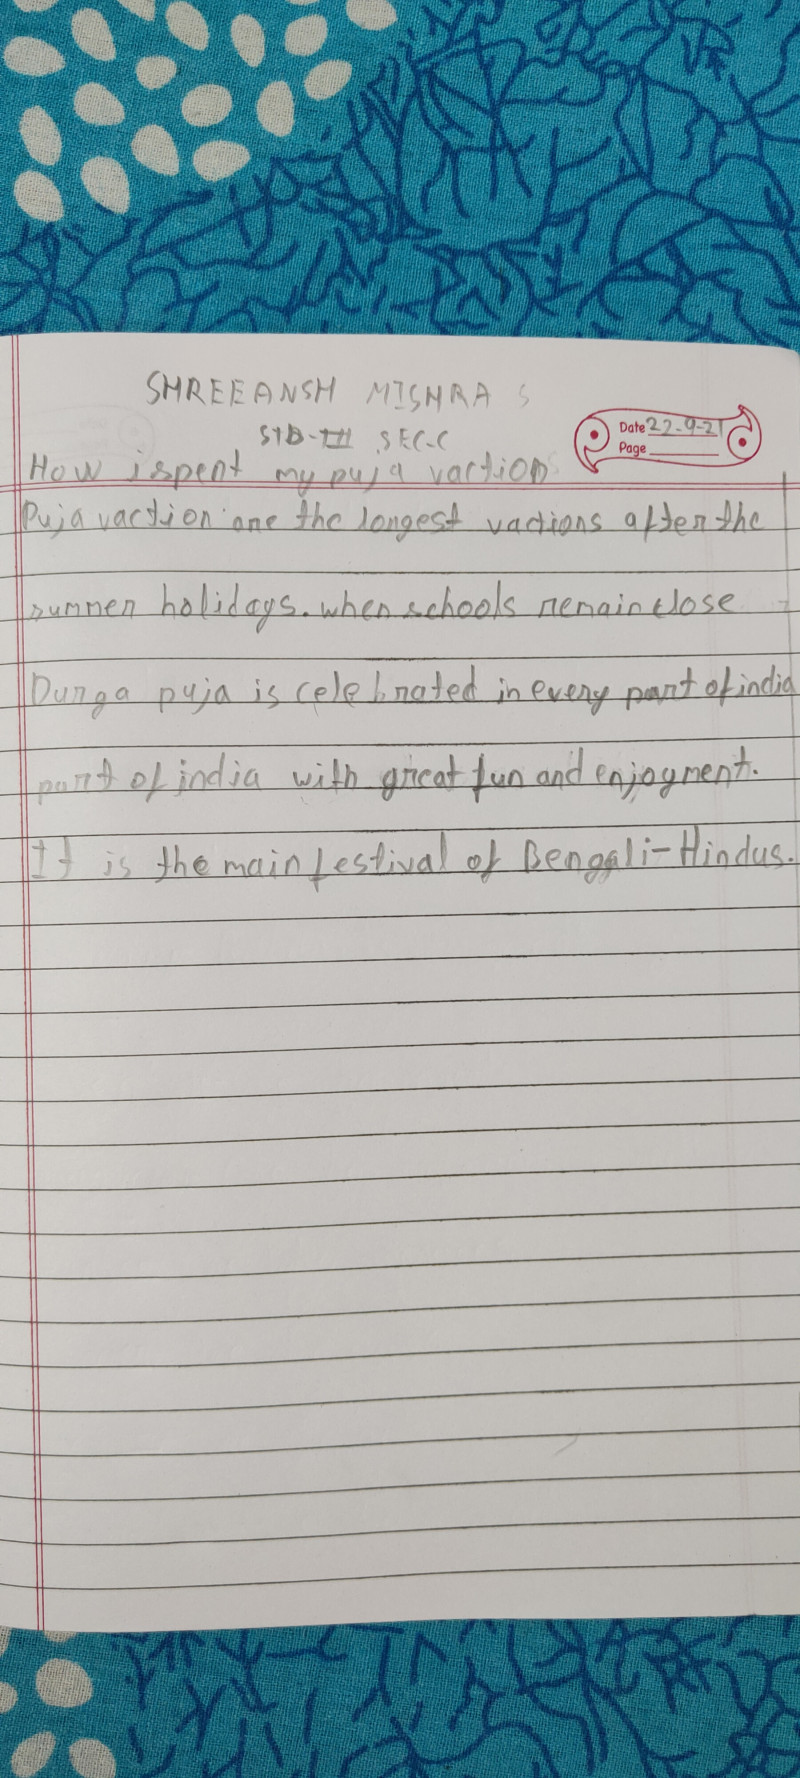 SHREEANSH MISHRA S
STD-III SEC-C
Date 22-9-21
Page
How i spent my puja vaction
Puja vaction one the longest vactions after the
summer holidays. when schools remain close
Durga puja is celebrated in every part of india
part of india with great fun and enjoyment.
It is the main festival of Bengali-Hindus.